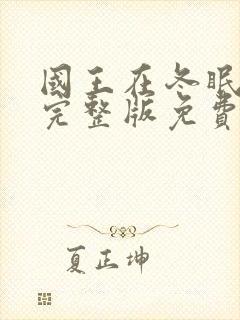 國王在冬眠
完整版免費
夏正坤